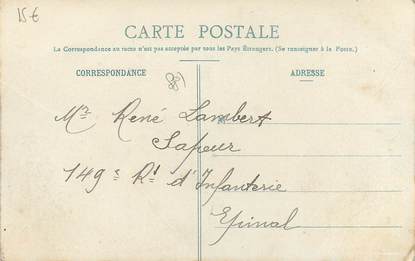 15€
CARTE POSTALE
La Correspondance au recto n'est pas acceptée par tous les Pays Étrangers. (Se renseigner à la Poste.)
CORRESPONDANCE
ADRESSE
Mr René Lambert
Sapeur
149e Rt d'Infanterie
Epinal